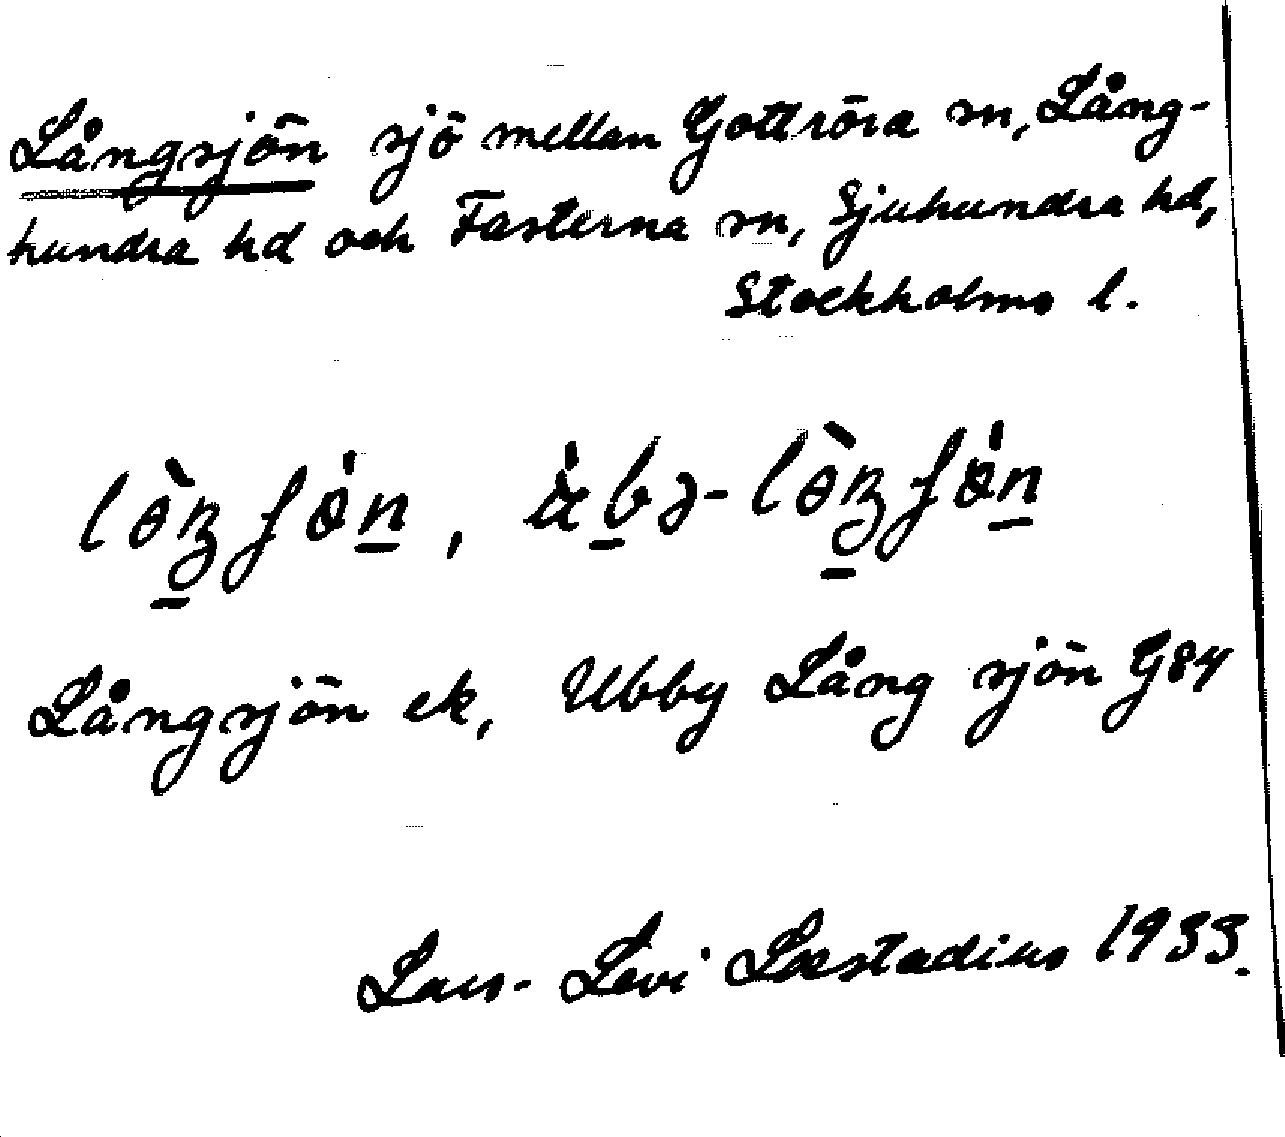 Långsjön sjö mellan Gottröra sn, Lång-
hundra hd och Fasterna sn, Sjuhundra hd,
Stockholms l.
Långsjön ek, Ubby Lång sjön G84
Lars-Levi Læstadius 1933.